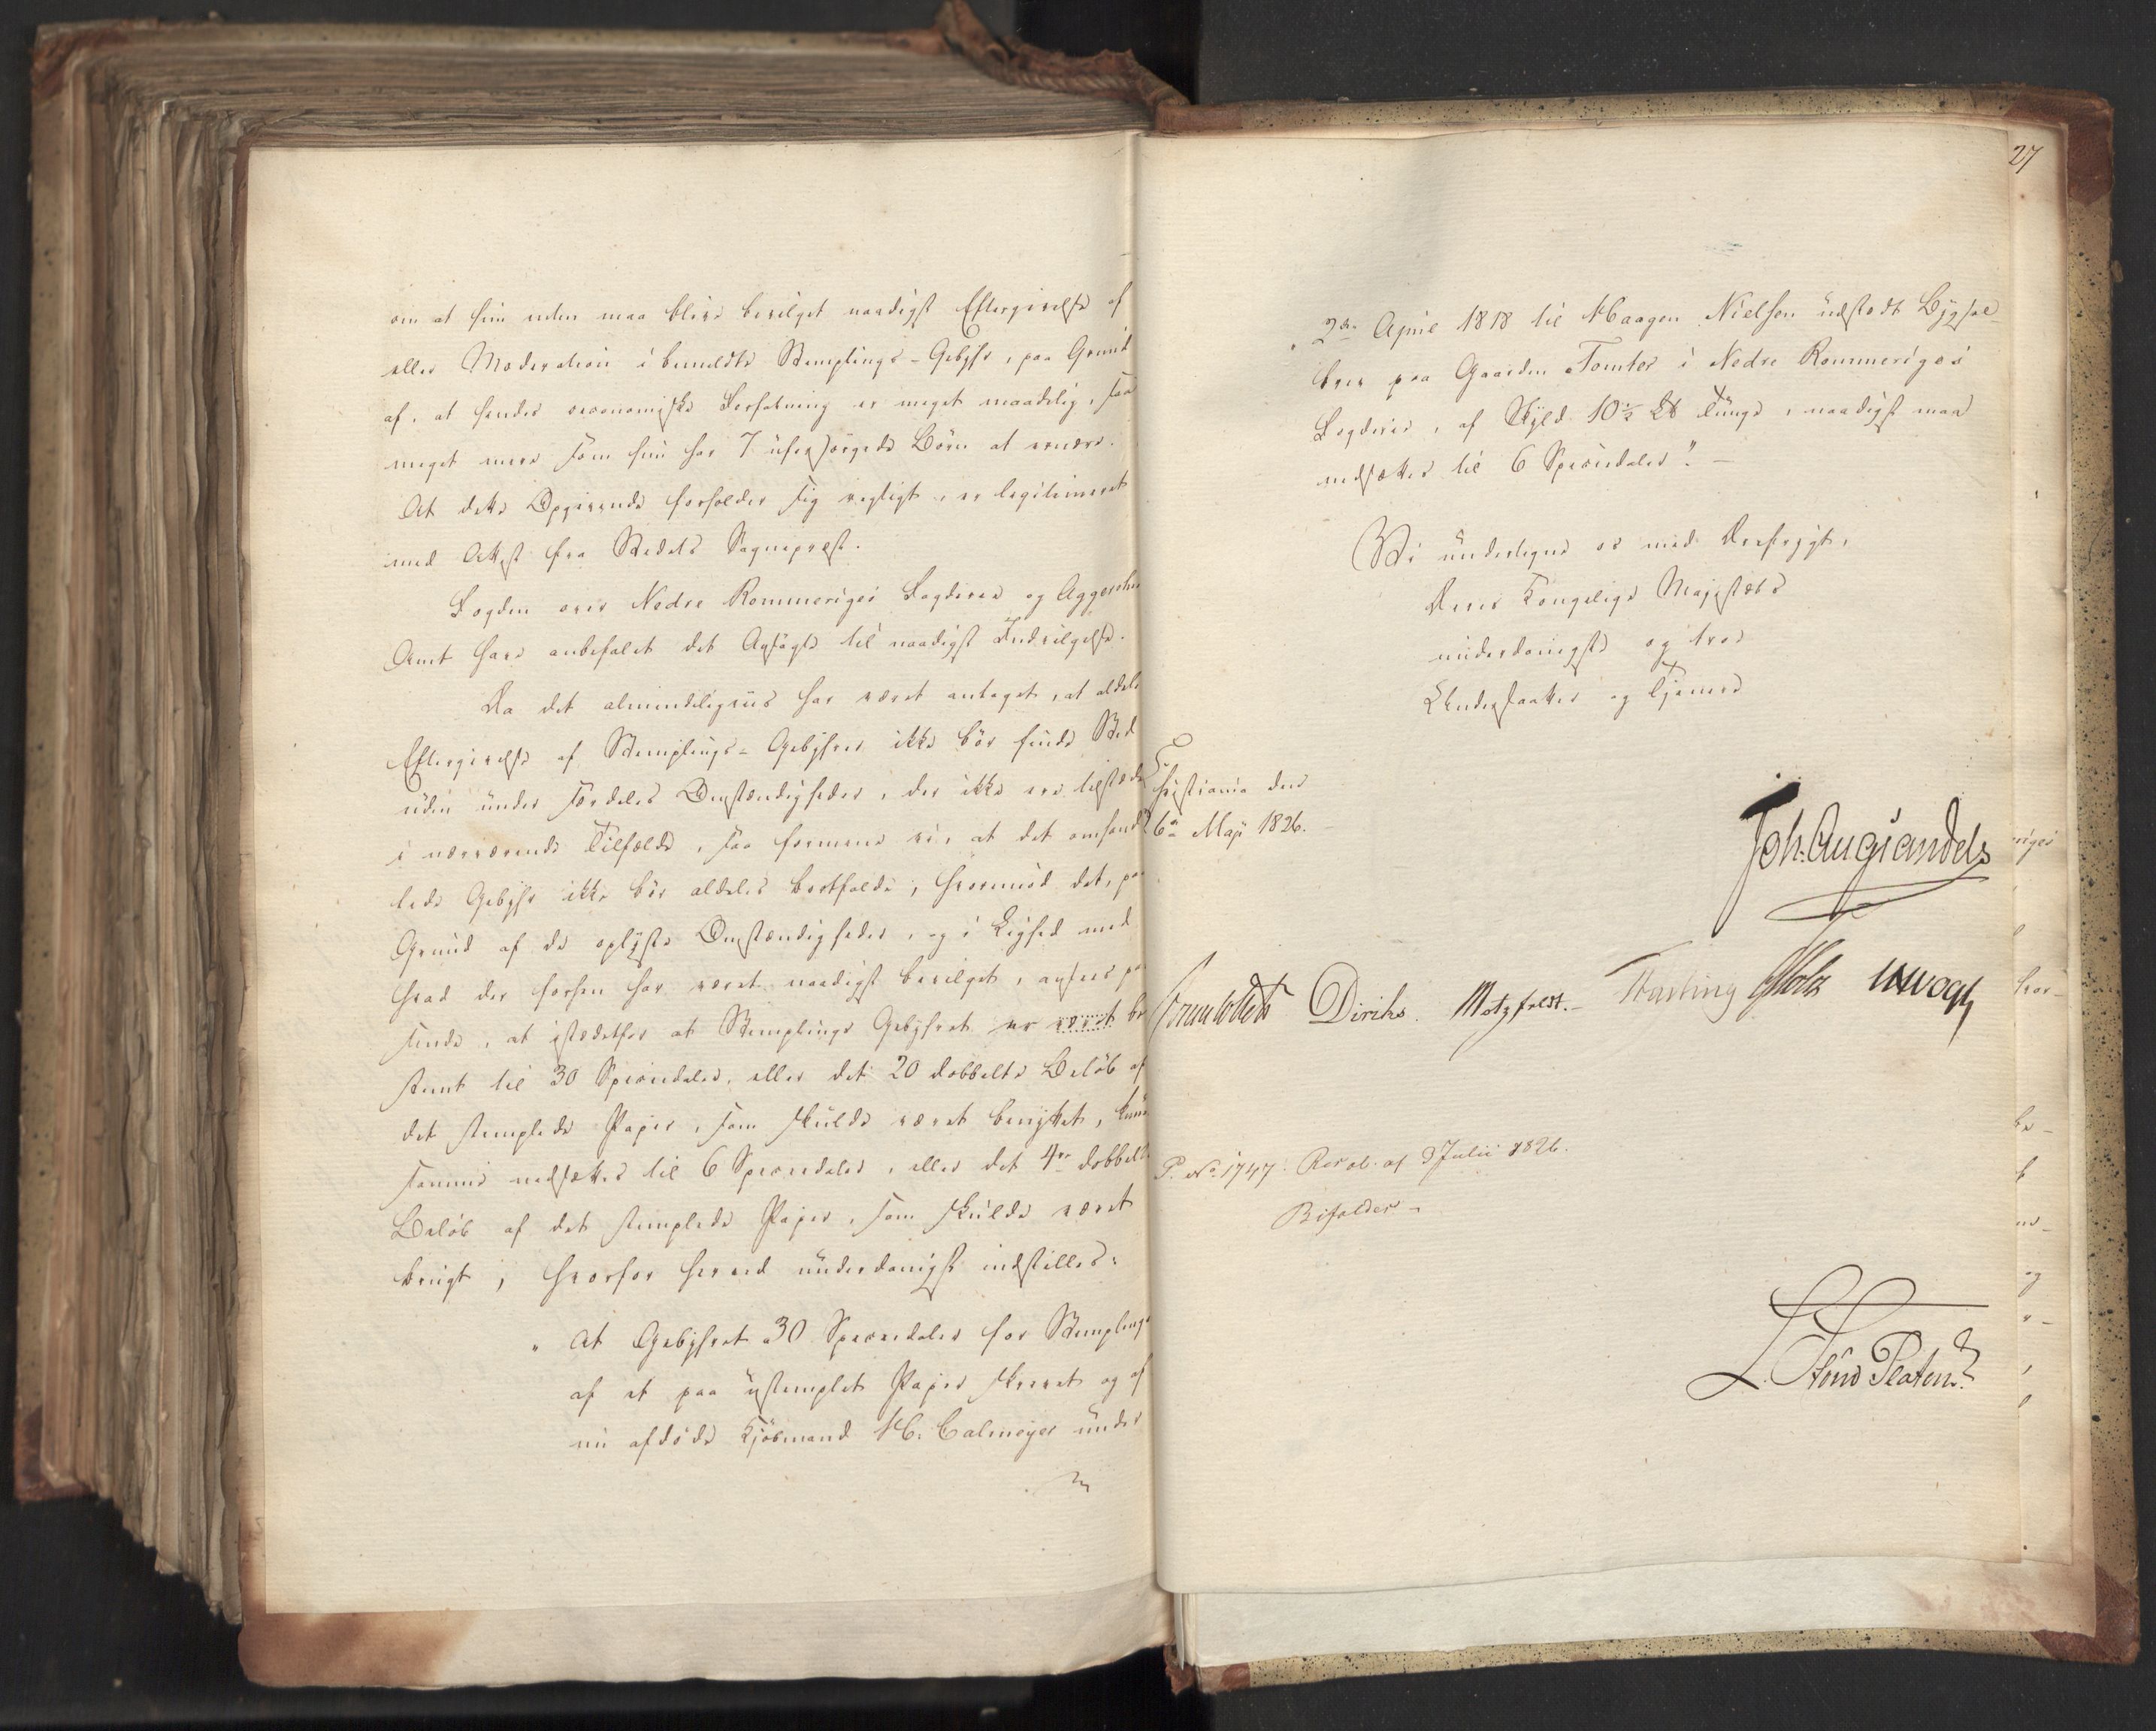 om at hun uden maa blive bevilget naadigst Eftergivelse af
eller Moderation i bemeldte Stemplings-Gebyhr, paa Grund
af, at hendes oeconomiske Forfatning er meget maadelig, saa
meget mere som hun har 7 uforsørgede Børn at ernære.
At dette Opgivende forholder sig rigtigt, er legitimeret
med Attest fra Stedets Sognepræst.
Fogden over Nedre Rommeriges Fogderie og Aggershuus
Amt have anbefalet det Ansøgte til naadigst Indvilgelse.
Da det almindeligviis har været antaget, at aldeles
Eftergivelse af Stemplings-Gebyhrer ikke bør finde Sted
uden under særdeles Omstændigheder, der ikke ere tilstæde
i nærværende Tilfælde, saa formene vi, at det omhand
lede Gebyhr ikke bør aldeles bortfalde, hvorimod det, paa
Grund af de oplyste Omstændigheder, og i Lighed med
hvad der forhen har været naadigst bevilget, ansees pas
sende, at istædetfor at Stemplings Gebyhret er været be
stemt til 30 Speciedaler, eller det 20 dobbelte Beløb af
det stemplede Papir, som skulde været benyttet, kun
sammes nedsættes til 6 Speciedaler, eller det 4re dobbelte
Beløb af det stemplede Papir, som skulde været
brugt, hvorfor herved underdanigst indstilles:
"At Gebyhret 30 Speciedaler for Stempling
af et paa ustemplet Papir skrevet og af
nu afdøde Kjøbmand H. Calmeyer under
27
"2den April 1818 til Haagen Nielsen udstedt Bygsel-
brev paa Gaarden Tomter i Nedre Rommeriges
Fogderie, af Skyld 10½ Lb Tunge, naadigst maa
nedsættes til 6 Speciedaler".-
Vi undertegne os med Ærefrygt,
Deres Kongelige Majestæts
underdanigste og troe
Undersaatter og Tjenere
Christiania den
6te Maji 1826.
Joh. Aug Sandels
Sommerhielm Diriks. Motzfeldt.- Fasting Holst JHVogt
P. No 1747. Resol. af 3 Julii 1826.
Bifalder-
L. v. Stend Platen.